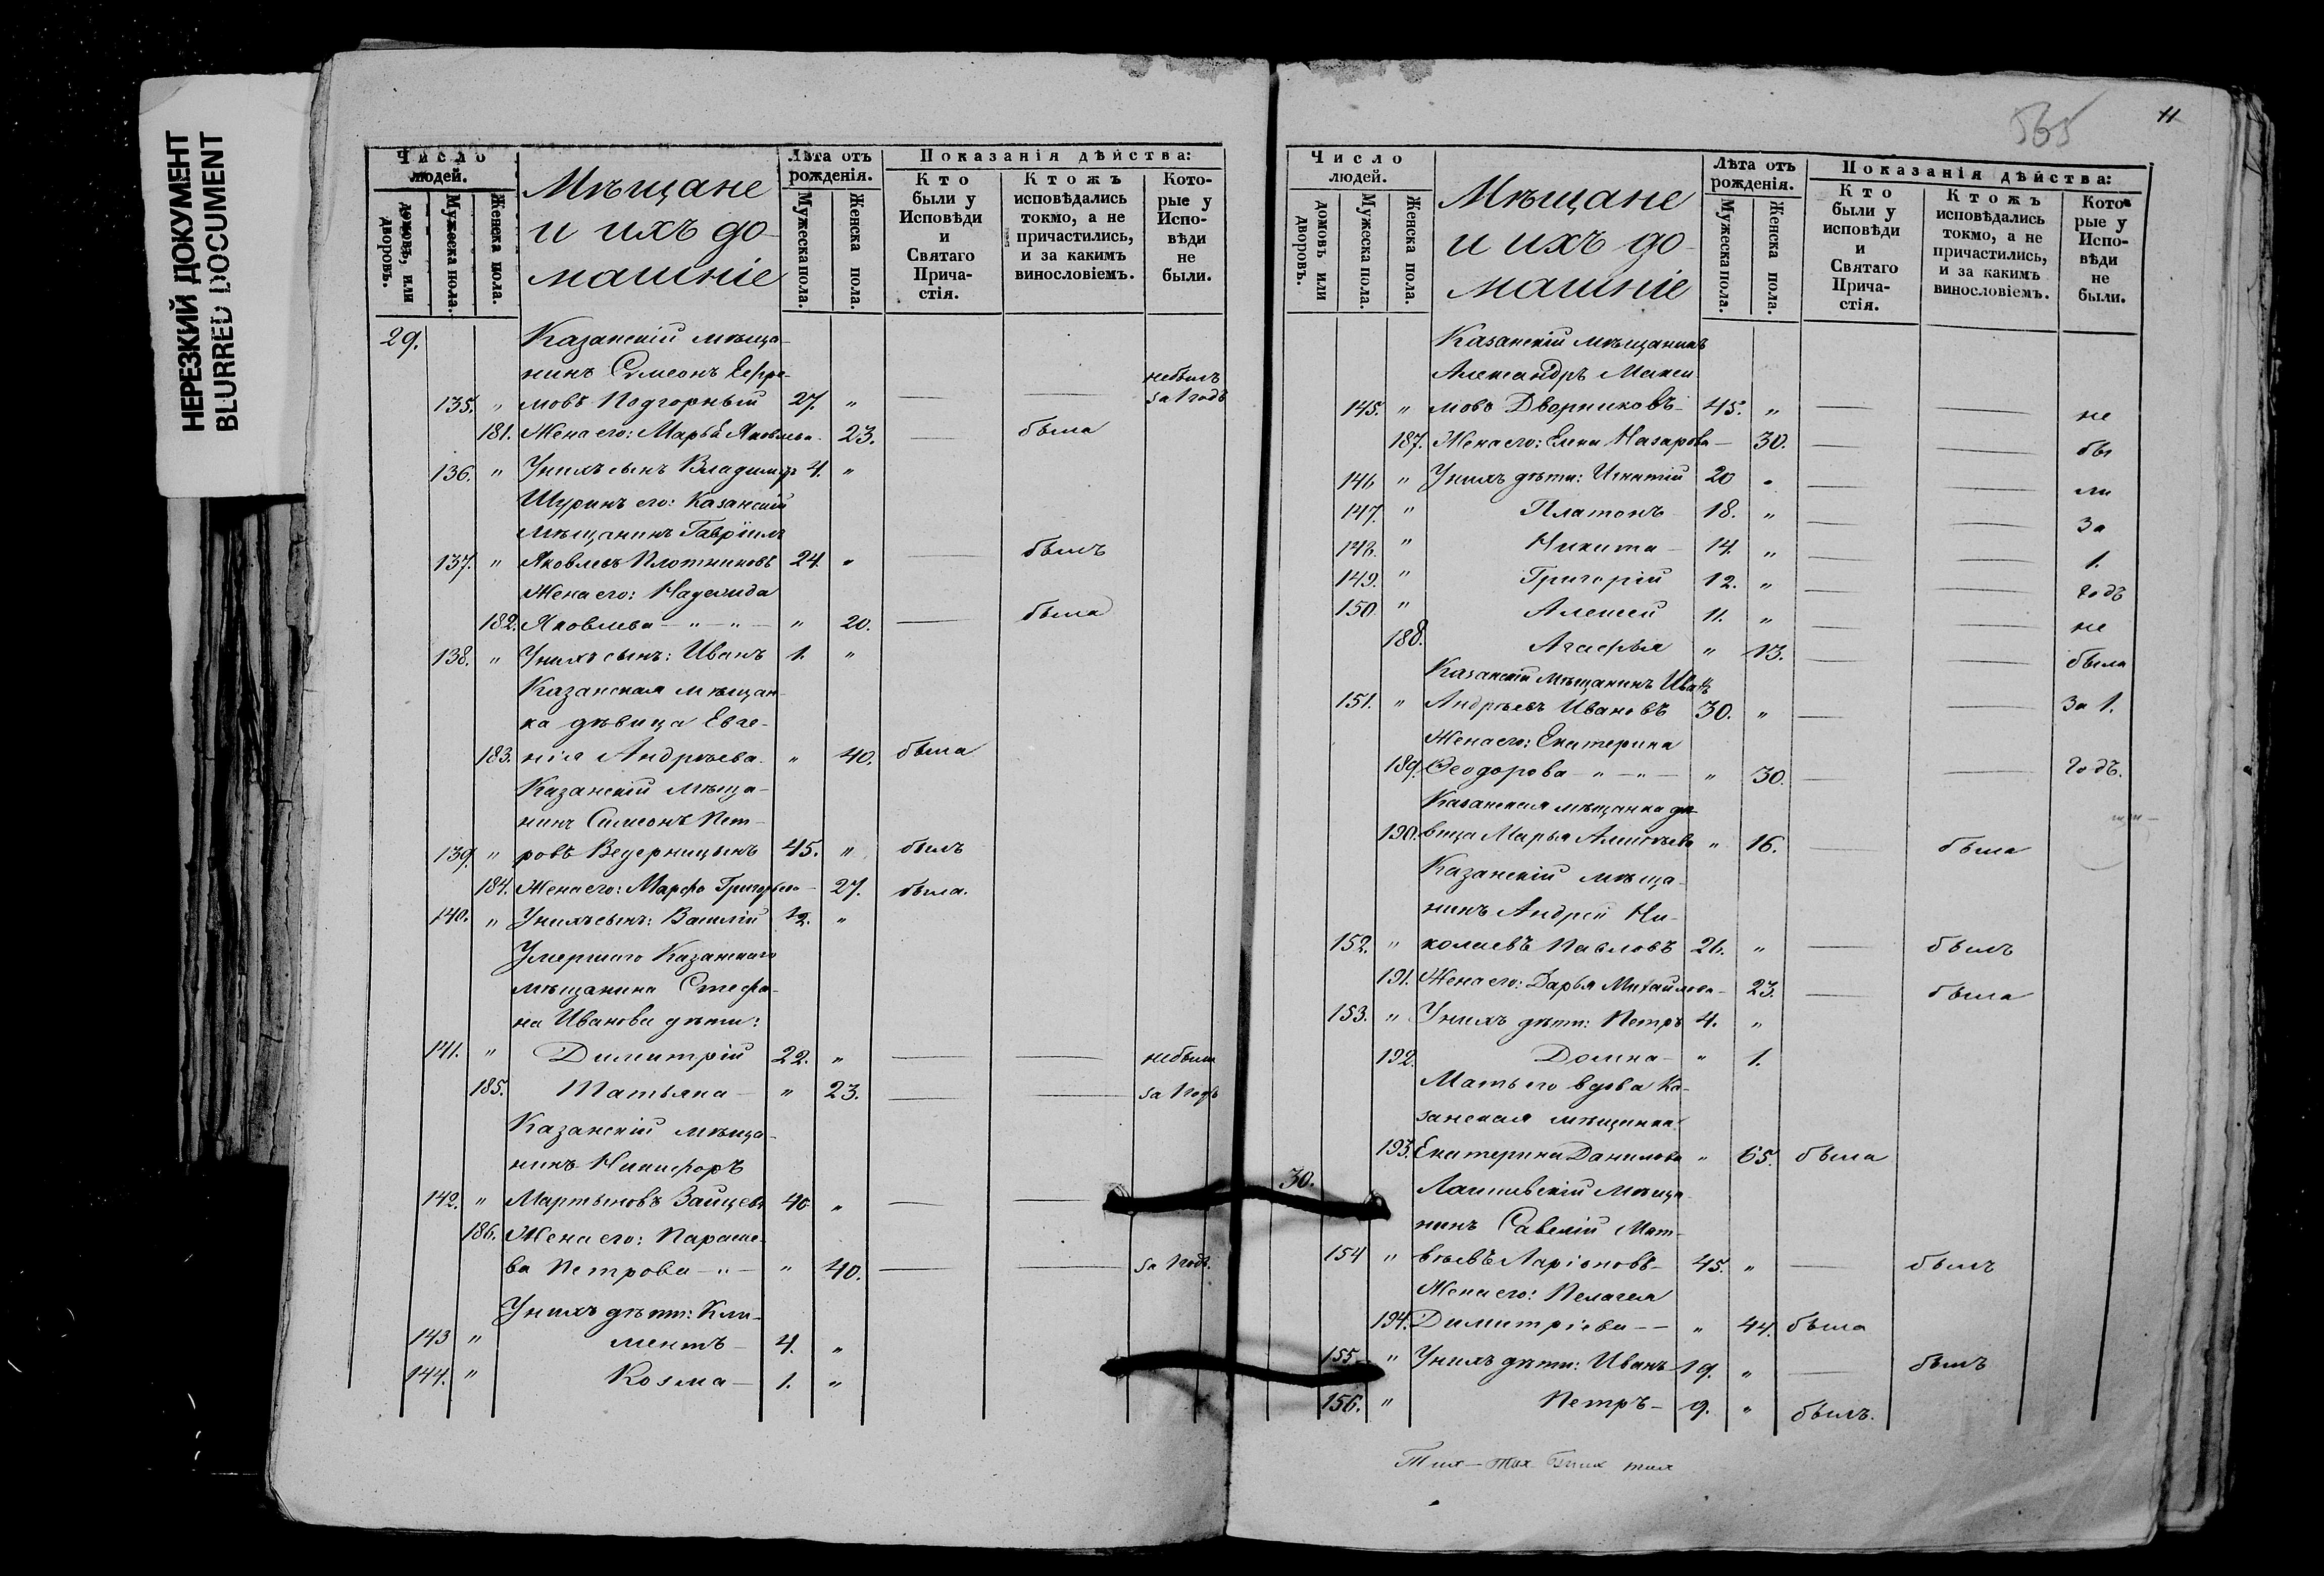 НЕРЕЗКИЙ ДОКУМЕНТ
BLURRED DOCUMENT
Число людей.
домовъ, или дворовъ.
Мужеска пола.
Женска пола.
Мѣщане
и ихъ до-
машніе
Лѣта отъ рожденія.
Мужеска пола.
Женска пола.
Показанія дѣйства:
Кто были у Исповѣди и Святаго Прича-стія.
Ктожъ исповѣдались токмо, а не причастились, и за какимъ винословіемъ.
Кото-рые у Испо-вѣди не были.
29. Казанскій мѣща-
нинъ Симеонъ Ефре- небылъ
135. " мовъ Подгорный 27. " — — за 1 годъ
181. Жена его: Марья Яковлева 23. — была
136. " У нихъ сынъ Владимиръ 4. "
Шуринъ его: Казанскій
мѣщанинъ Гавріилъ
137. " Яковлевъ Плотниковъ 24. " — былъ
Жена его: Надежда
182. Яковлева — " — " — " 20. — была
138. " У нихъ сынъ: Иванъ 1. "
Казанская мѣщан-
ка дѣвица Евге-
183. нія Андреева. " 40. была
Казанскій мѣща-
нинъ Симеонъ Пет-
139. " ровъ Ведерницынъ 45. " былъ
184. Жена его: Марфа Григорьева — 27. была.
140. " У нихъ сынъ: Василій ½. "
Умершаго Казанскаго
мѣщанина Стефа-
на Иванова дѣти:
141. " Димитрій 22. " — — небыли
185. Татьяна — " 23. — — за 1 годъ
Казанскій мѣща-
нинъ Никифоръ
142. " Мартыновъ Зайцевъ 40 " — —
186. Жена его: Параске-
ва Петрова — " — " 40. — — за 1 годъ.
У нихъ дѣти: Кли-
143 " ментъ — 4. "
144. " Козма — 1. "
565
11
Число людей.
домовъ или дворовъ.
Мужеска пола.
Женска пола.
Мѣщане
и ихъ до-
машніе
Лѣта отъ рожденія.
Мужеска пола.
Женска пола.
Показанія дѣйства:
Кто были у исповѣди и Святаго Прича-стія.
Ктожъ исповѣдались токмо, а не причастились, и за какимъ винословіемъ.
Кото-рые у Испо-вѣди не были.
Казанскій мѣщанинъ
Александръ Макси-
145. " мовъ Дворниковъ — 45. " — — не
187. Жена его: Елена Назарова — 30. — — бы
146 " У нихъ дѣти: Игнатій 20 " — — ли
147. " Платонъ 18. " — — за
148. " Никита — 14. " — — 1.
149. " Григорій 12. " — — годъ
150. " Алексей 11. " — — не
188. Агафья " 13. — — была
Казанскій мѣщанинъ Иванъ
151. " Андреевъ Ивановъ 30. " — — за 1.
Жена его: Екатерина
189. Ѳеодорова — " — " — " 30. — — годъ.
Казанская мѣщанка дѣ-
190. вица Марья Алексѣева " 16. — была
Казанскій мѣща-
нинъ Андрей Ни-
152. " колаевъ Павловъ 26. " — былъ
191. Жена его: Дарья Михайлова — 23. — была
153. " У нихъ дѣти: Петръ 4. "
192. Домна — " 1.
Мать его вдова Ка-
занская мѣщанка
193. Екатерина Данилова " 65. была
30. Лаишевскій мѣща-
нинъ Савелій Мат-
154 " вѣевъ Ларіоновъ — 45. " — былъ
Жена его: Пелагея
194. Димитріева — — " 44. была
155 " У нихъ дѣти: Иванъ 19. " — былъ
156. " Петръ — 9. " былъ.